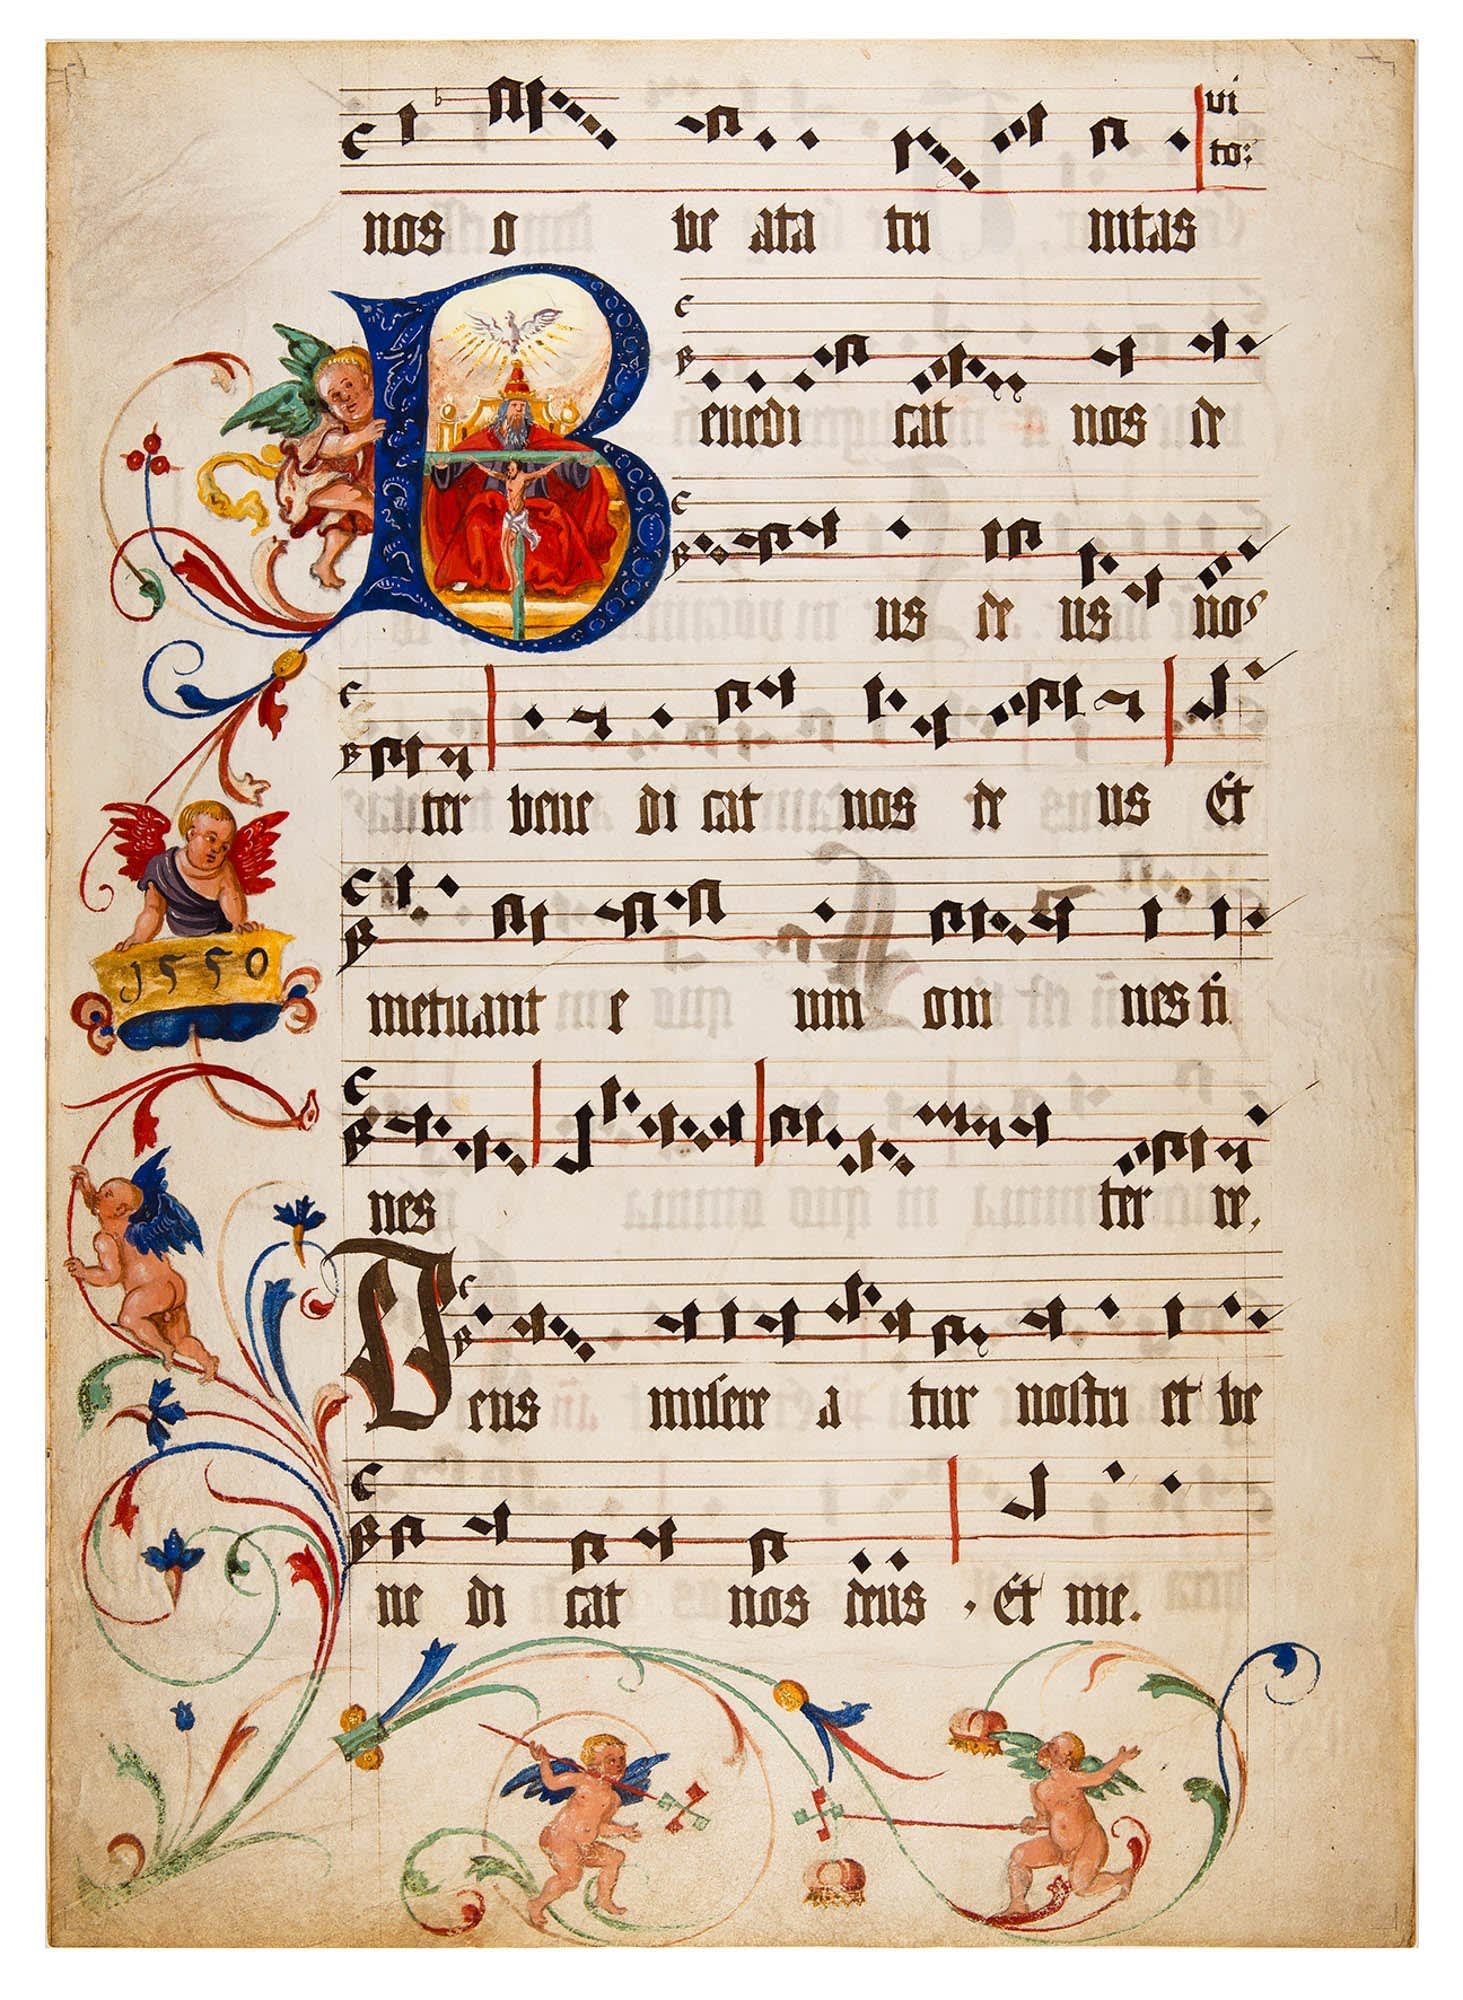 vi
to:
nos o be ata tri nitas
Benedi cat nos de
us de us nos
ter bene di cat nos de us Et
1550
metuant e um om nes fi
nes ter re,
Deus misere a tur nostri et be
ne di cat nos deus, Et me.